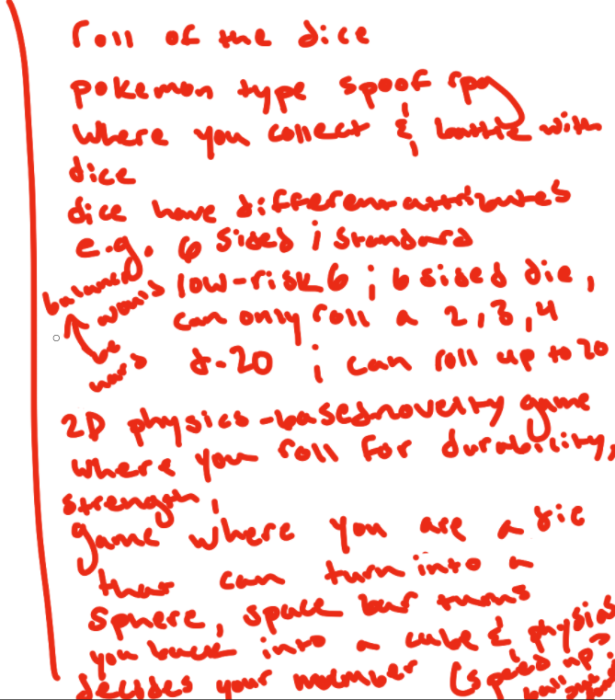 roll of the dice
pokemon type spoof rpg
where you collect & battle with
dice
dice have different attributes
e.g. 6 sided ; standard
low-risk 6 ; 6 sided die,
can only roll a 2, 3, 4
balance
would
be
hard
d-20 ; can roll up to 20
2D physics-based novelty game
where you roll for durability,
strength,
game where you are a die
that can turn into a
sphere, space bar turns
you back into a cube & physics
decides your number (speed up?